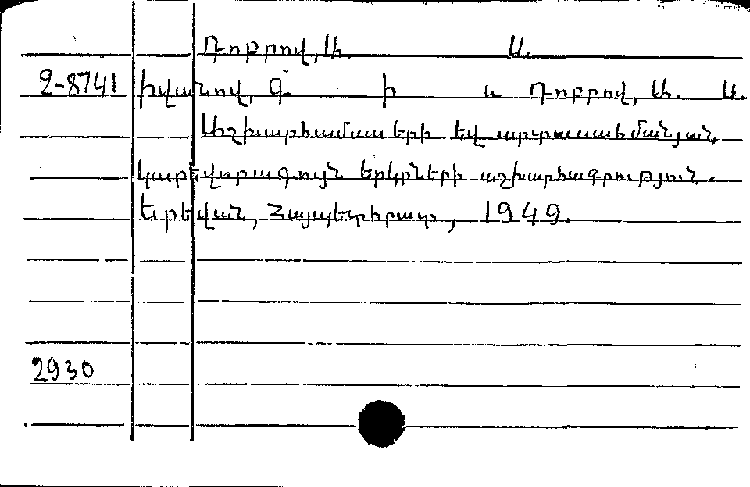 Դոբրով, Ա. Ա.
2-8741 Իվանով, Գ. Ի և Դոբրով, Ա. Ա.
Աշխարհամասերի եվ արտասահմանյան
կարեվորագույն երկրների աշխարհագրություն.
Երեվան, Հայպետհրատ, 1949.
2930